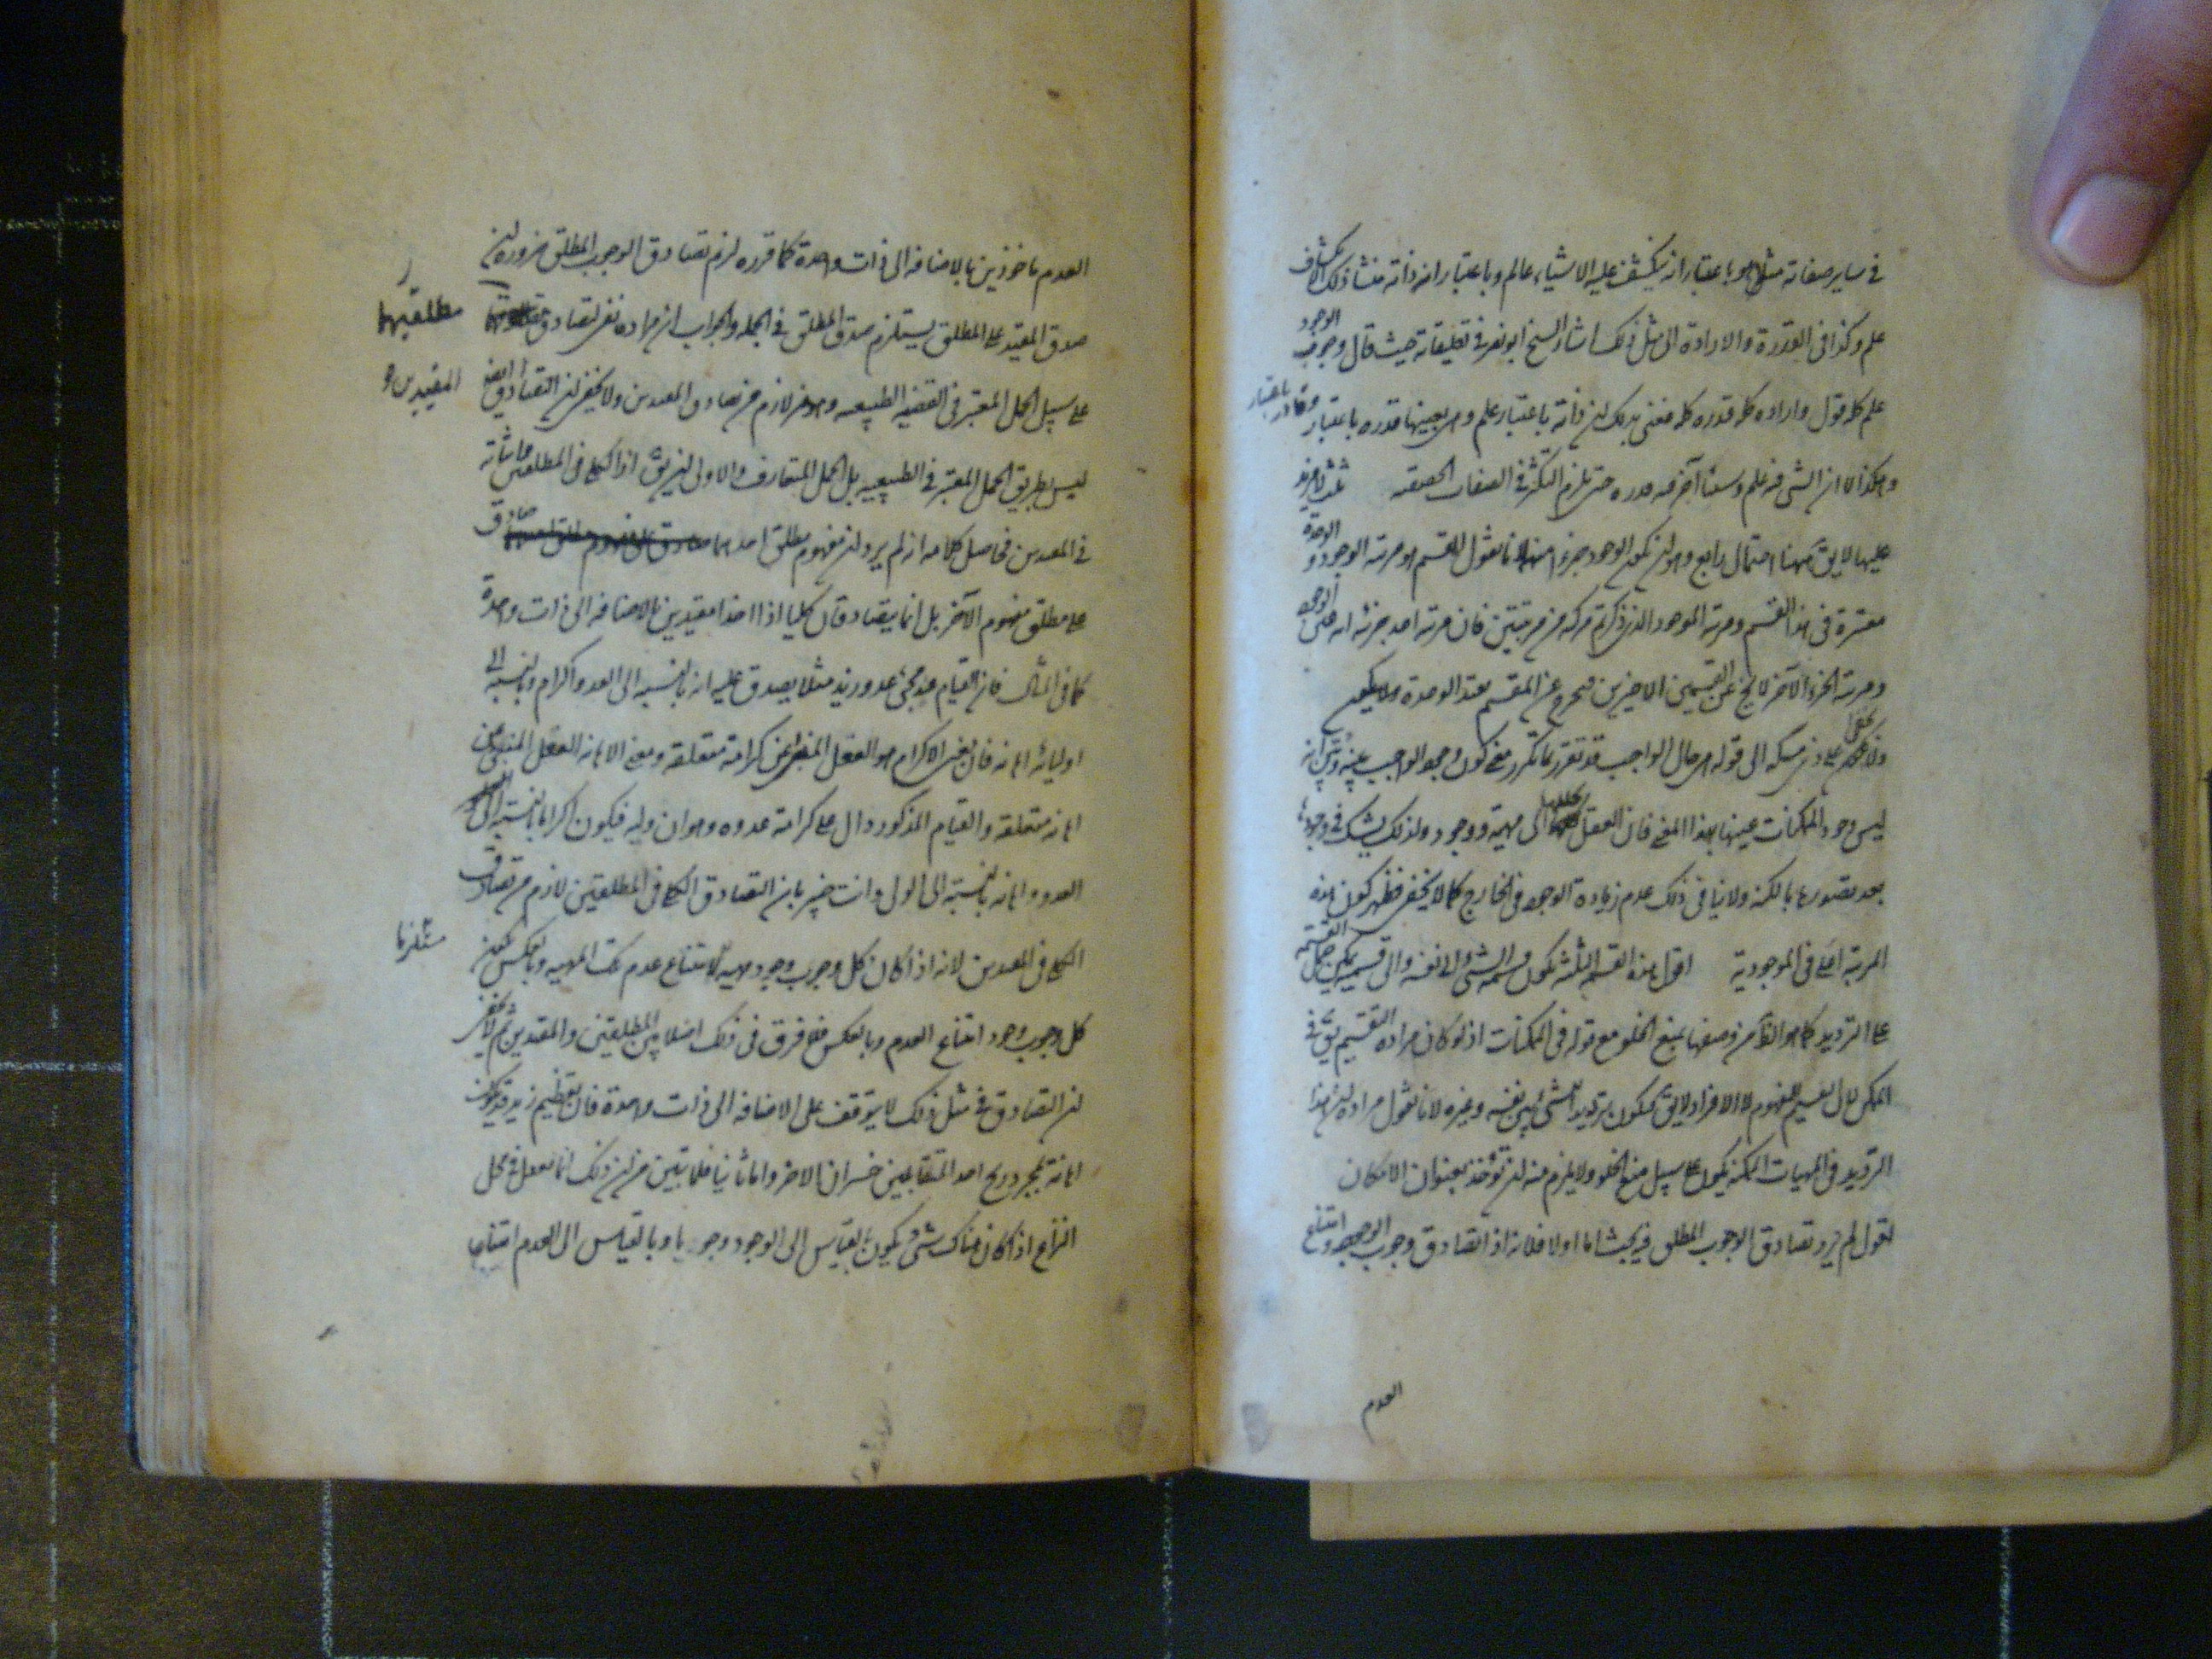 في ساير صفاته مثلا هو باعتبار انه ينكشف عليه الاشياء عالم وباعتبار انه ذاته منشأ ذلك الانكشاف
علم وكذا في القدرة والارادة الى مثل ذلك اشار الشيخ ابو نصر في تعليقاته حيث قال وجود
علم كله قدرة كله فمعنى ذلك ان ذاته باعتبار علم وهي بعينها قدره باعتبار
وهكذا لا ان الشئ فيه علم وشيئا آخر فيه قدره حتى يلزم التكثر في الصفات الحقيقية
عليها لا يق ههنا احتمال رابع وهو ان يكون الوجود جزءا منها لانا نقول المقسم هو مرتبة الوجود والوحدة
معتبرة في هذا القسم ومرتبة الموجود الذي ذكرته مركبة من مرتبتين فان مرتبة احد جزئيه
ومرتبة الجزء الآخر لا يخ عن القسمين الاخيرين فيخرج عن المقسم بقيد الوحدة
الى قوله هي حال الواجب قد تقرر بما تكرر معنى كون وجود الواجب عينه
ليس وجود الممكنات عينها بهذا المعنى فان العقل يحللها الى مهية ووجود ولذلك يشك في وجودها
بعد تصورها بالكنه ولا ينافي ذلك عدم زيادة الوجود في الخارج كما لا يخفى فظهر كون هذه
المرتبة اعلى في الموجودية اقول هذه القسمة الثلثة تكون قسمة الشئ الى نفسه والى قسيمه يمكن حمل القسمة
على الترديد كما هو الظاهر من وصفها بمنع الخلو مع قوله في الممكنات اذ لو كان مراده التقسيم
لا الافراد لا يق فيكون ترديد الشئ بين نفسه وغيره لانا نقول مراده ان هذا
الترديد في المهيات الممكنة يكون على سبيل منع الخلو ولا يلزم منه ان تؤخذ بعنوان الامكان
لقول لم يرد تصادق الوجوب المطلق فيه بحث اما اولا فلانه اذا تصادق وجوب الوجود وامتناع
العدم
العدم ماخوذين بالاضافة الى ذات واحدة كما قرره لزم تصادق الوجوب المطلق ضرورة ان
صدق المقيد على المطلق يستلزم صدق المطلق في الجملة والجواب ان مراده نفي تصادق
مطلقيهما
على سبيل الحمل المعتبر في القضية الطبيعية وهو غير لازم من تصادق المقيدين ولا يخفى ان التصادق
المقيدين
ليس بطريق الحمل المعتبر في الطبيعية بل الحمل المتعارف والاولى ان يق
في المقيدين فحاصل كلامه انه لم يرد ان مفهوم مطلق احدهما صادق
على مطلق مفهوم الآخر بل انما يتصادقان كليا اذا اخذا مقيدين بالاضافة الى ذات واحدة
كما في المثال فان القيام عند مجئ عدو زيد مثلا يصدق عليه انه بالنسبة الى العدو اكرام وبالنسبة الى
اوليائه اهانة فان معنى الاكرام هو الفعل المنبئ عن كرامة متعلقه ومعنى الاهانة الفعل المنبئ عن
اهانة متعلقه والقيام المذكور دال على كرامة عدوه وهوان وليه فيكون اكراما بالنسبة الى
العدو واهانة بالنسبة الى الولي وانت خبير بان التصادق الكلي في المطلقين لازم من تصادق
الكلي في المقيدين لانه اذا كان كل وجوب وجود مهية امتناع عدم تلك المهية وبالعكس
مستلزما
كل وجوب وجود امتناع العدم وبالعكس فلا فرق في ذلك اصلا بين المطلقين والمقيدين ثم لا يخفى
ان التصادق في مثل ذلك لا يتوقف على الاضافة الى ذات واحدة فان تعظيم زيد قد يكون
اهانة وربح احد المتقابلين خسران الاخر واما ثانيا فلما تبين من ان ذلك انما في محل
النزاع اذا كان هناك شئ يكون بالقياس الى الوجود وجوبا وبالقياس الى العدم امتناعا